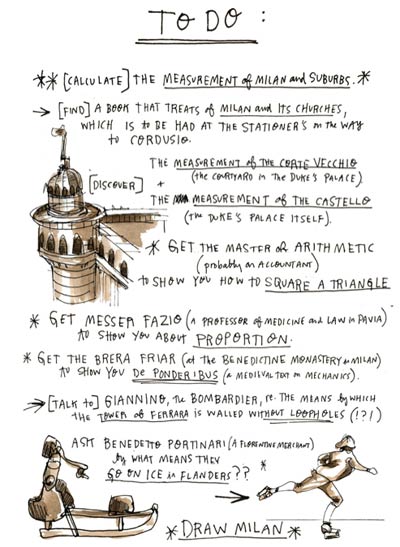 TO DO :
** [CALCULATE] THE MEASUREMENT of MILAN and SUBURBS. *
→ [FIND] A BOOK THAT TREATS OF MILAN and ITS CHURCHES,
WHICH IS TO BE HAD AT THE STATIONER'S on the WAY
to CORDUSIO.
[DISCOVER]
THE MEASUREMENT OF THE CORTE VECCHIO
(the COURTYARD in the DUKE'S PALACE)
+
THE MEASUREMENT OF THE CASTELLO
(the DUKE'S PALACE ITSELF).
* GET THE MASTER of ARITHMETIC
(probably an ACCOUNTANT)
to SHOW YOU HOW to SQUARE A TRIANGLE
* GET MESSER FAZIO (A PROFESSOR of MEDICINE and LAW in PAVIA)
to SHOW YOU ABOUT PROPORTION.
* GET THE BRERA FRIAR (at the BENEDICTINE MONASTERY in MILAN)
to SHOW YOU DE PONDERIBUS (a MEDIEVAL TEXT on MECHANICS).
→ [TALK to] GIANNINO, the BOMBARDIER, re. THE MEANS by WHICH
the TOWER of FERRARA is WALLED WITHOUT LOOPHOLES (!?!)
ASK BENEDETTO PORTINARI (A FLORENTINE MERCHANT)
by WHAT MEANS THEY
GO ON ICE in FLANDERS?? *
→
* DRAW MILAN *